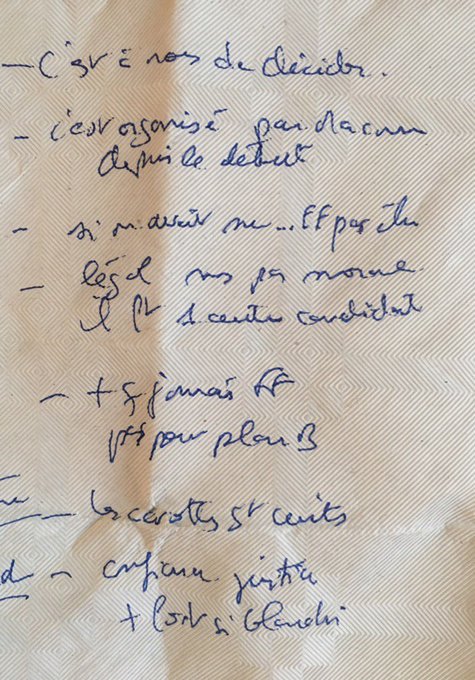 — C'est à nous de décider.
– c'est organisé par Macron
depuis le début
– si on avait su... FF pas élu
– légal mais pas morale
il ft 1 autre candidat
– + q jamais FF
prêt pour plan B
— les carottes st cuites
– confiance justice
+ fort si blanchi